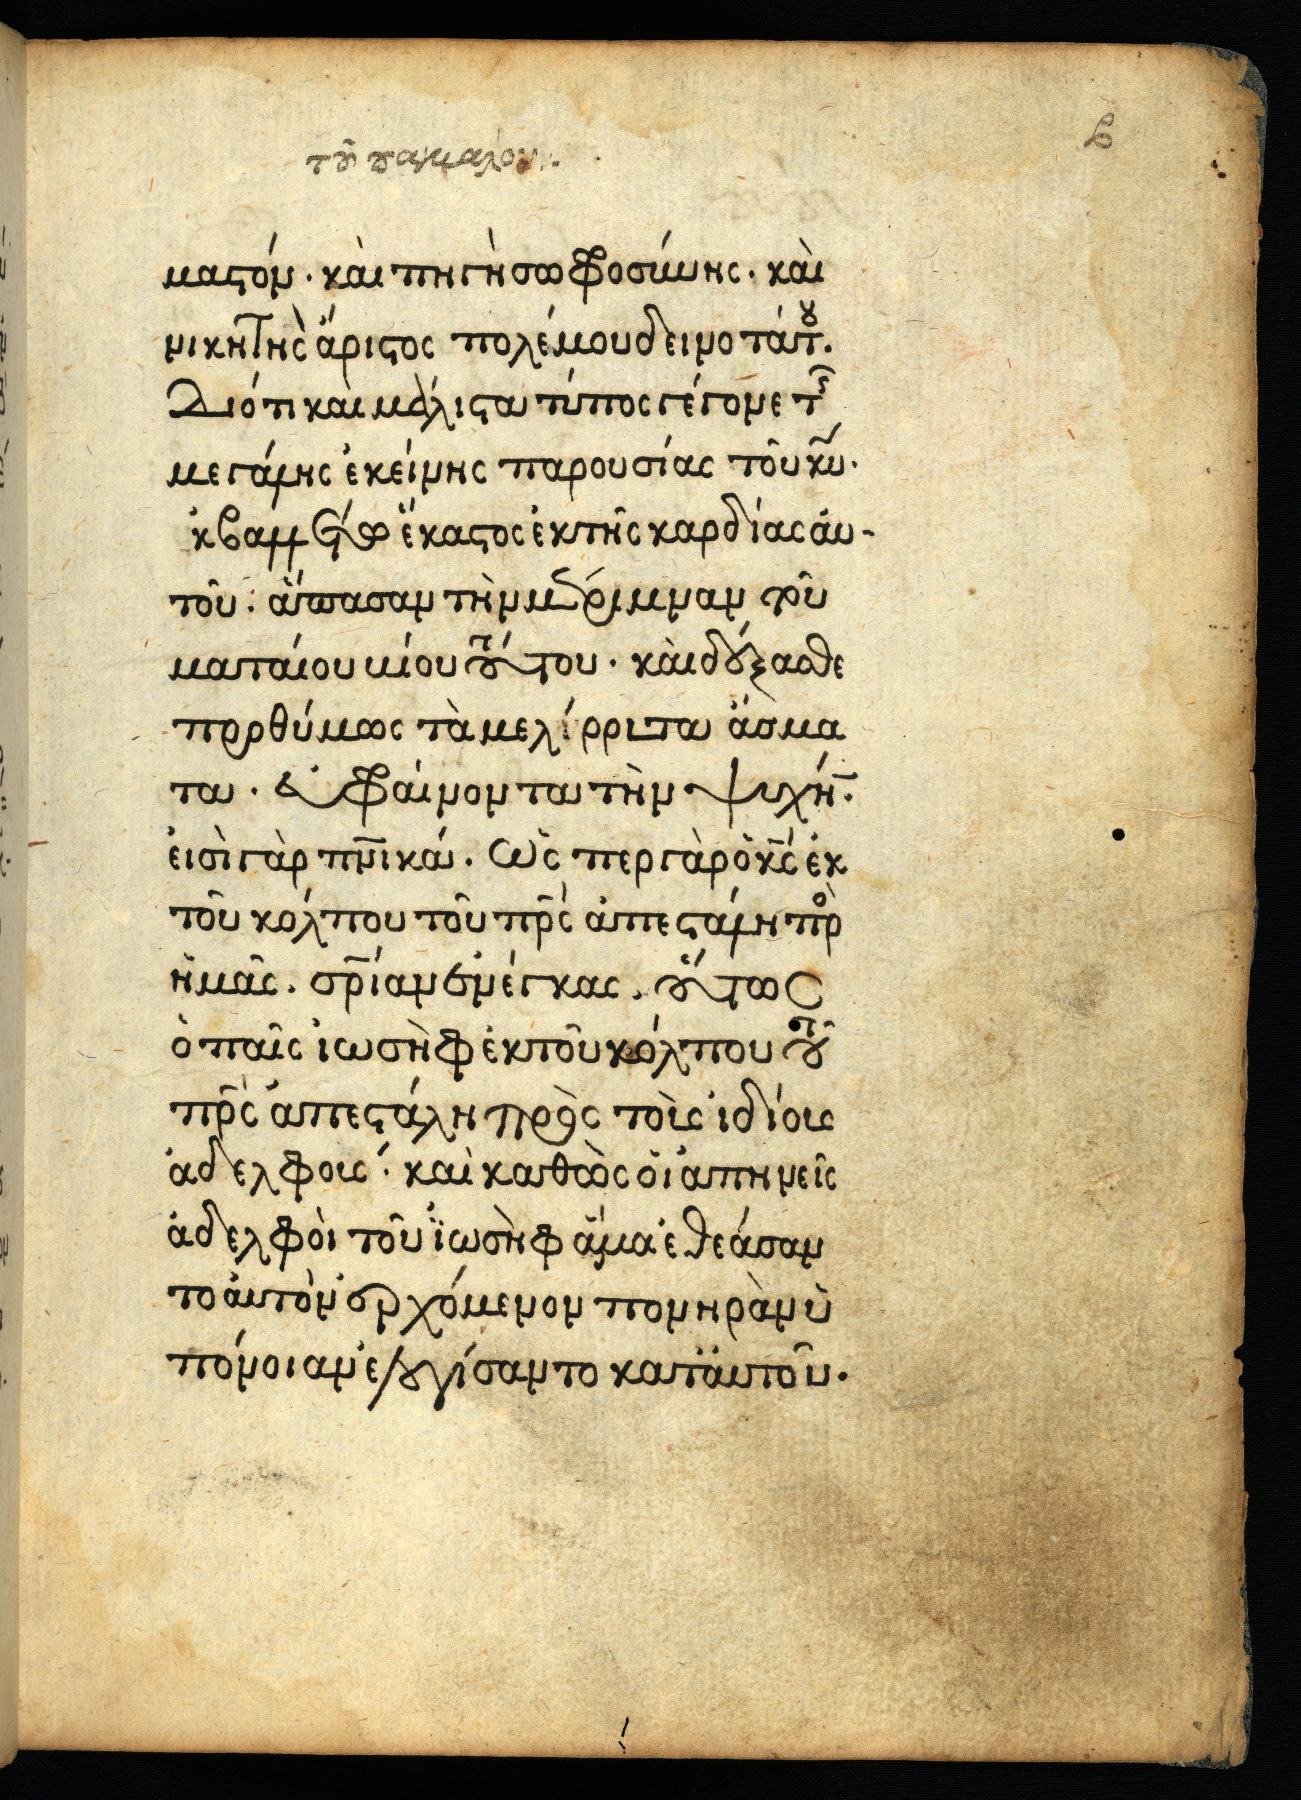 τοῦ παγκάλου
β
μαστόν. καὶ πηγὴ σωφροσύνης. καὶ
νικητὴς ἄριστος πολέμου δεινοτάτου.
Διότι καὶ μάλιστα τύπος γέγονε τῆς
μεγάλης ἐκείνης παρουσίας τοῦ κυ̅.
ἐκβαλλέτω ἕκαστος ἐκ τῆς καρδίας αὐ-
τοῦ. ἅπασαν τὴν μέριμναν τοῦ
ματαίου βίου τούτου. καὶ δέξασθε
προθύμως τὰ μελίρριτα ἄσμα
τα. εὐφραίνοντα τὴν ψυχήν.
εἰσὶ γὰρ πν̅ικά. Ὥσπερ γὰρ ὁ κς̅ ἐκ
τοῦ κόλπου τοῦ πρ̅ς ἀπεστάλη πρὸς
ἡμᾶς. σρ̅ίαν ἐνέγκας. οὕτως
ὁ παῖς ἰωσὴφ ἐκ τοῦ κόλπου τοῦ
πρ̅ς ἀπεστάλη πρὸς τοῖς ἰδίοις
ἀδελφοῖς. καὶ καθὼς οἱ ἀπηνεῖς
ἀδελφοὶ τοῦ ἰωσὴφ ἅμα ἐθεάσαν
το αὐτὸν ἐρχόμενον πονηρὰν ὑ
πόνοιαν ἐλογίσαντο κατ' αὐτοῦ.